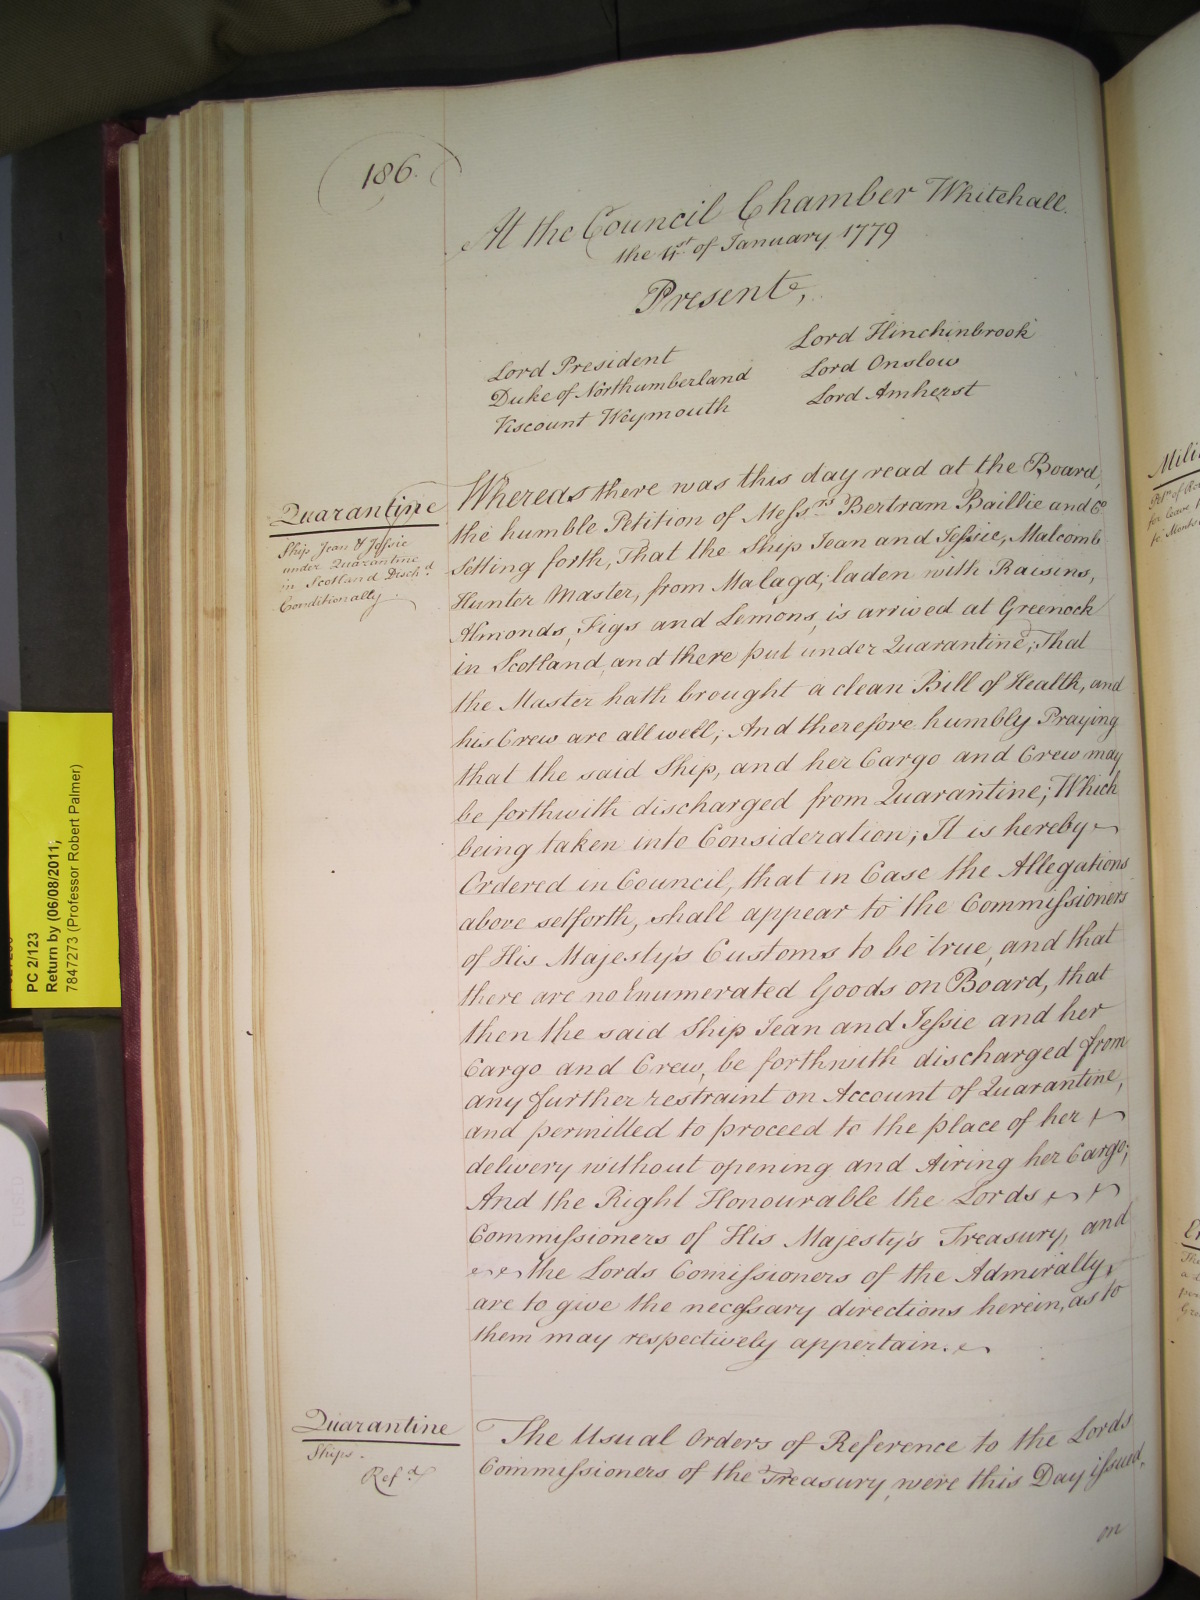 186.
At the Council Chamber Whitehall.
the 4st of January 1779
Present,
Lord President
Duke of Northumberland
Viscount Weymouth
Lord Hinchinbrook
Lord Onslow
Lord Amherst
Quarantine
Ship Jean & Jessie
under Quarantine
in Scotland Disch.d
Conditionally
Whereas there was this day read at the Board,
the humble Petition of Mess.rs Bertram Baillie and Co
Setting forth, That the Ship Jean and Jessie, Malcomb
Hunter Master, from Malaga, laden with Raisins,
Almonds, Figs and Lemons, is arrived at Greenock
in Scotland, and there put under Quarantine; That
the Master hath brought a clean Bill of Health, and
his Crew are all well; And therefore humbly Praying
that the said Ship, and her Cargo and Crew may
be forthwith discharged from Quarantine; Which
being taken into Consideration; It is hereby
Ordered in Council, that in Case the Allegations
above setforth, shall appear to the Commissioners
of His Majesty's Customs to be true, and that
there are no Enumerated Goods on Board, that
then the said Ship Jean and Jessie and her
Cargo and Crew, be forthwith discharged from
any further restraint on Account of Quarantine,
and permitted to proceed to the place of her
delivery without opening and Airing her Cargo;
And the Right Honourable the Lords
Commissioners of His Majesty's Treasury, and
the Lords Comissioners of the Admiralty,
are to give the necessary directions herein, as to
them may respectively appertain.
Quarantine
Ships.
Ref.d
The Usual Orders of Reference to the Lords
Commissioners of the Treasury, were this Day issued,
on
PC 2/123
Return by (06/08/2011;
7847273 (Professor Robert Palmer)